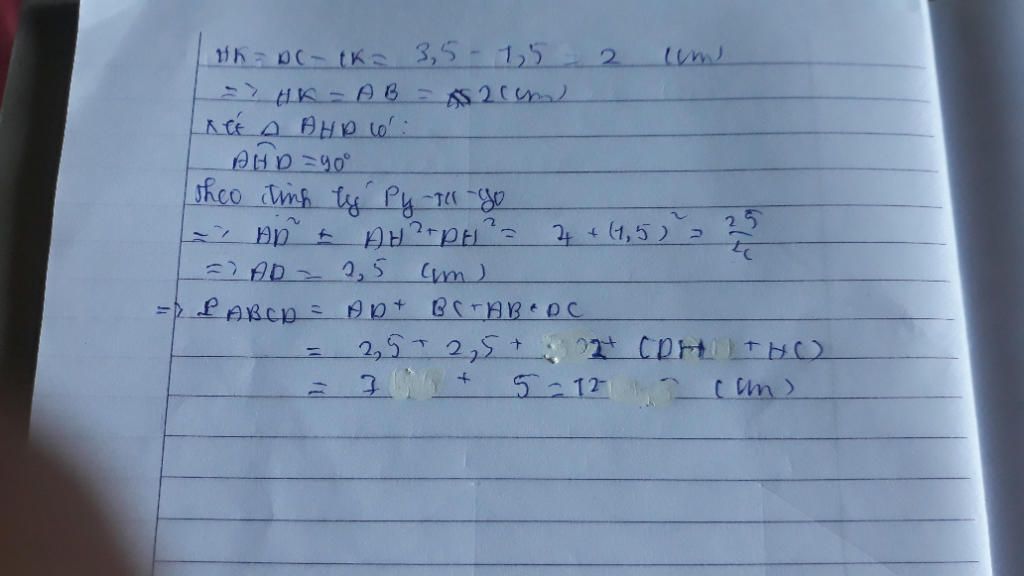 HK = DC - CK = 3,5 - 1,5 = 2 (cm)
=> HK = AB = 2 (cm)
Xét Δ AHD có:
AHD = 90°
theo định lý Py-ta-go
=> AD² = AH² + DH² = 4 + (1,5)² = 25/4
=> AD = 2,5 (cm)
=> P ABCD = AD + BC + AB + DC
= 2,5 + 2,5 + 2 + (DH + HC)
= 7 + 5 = 12 (cm)